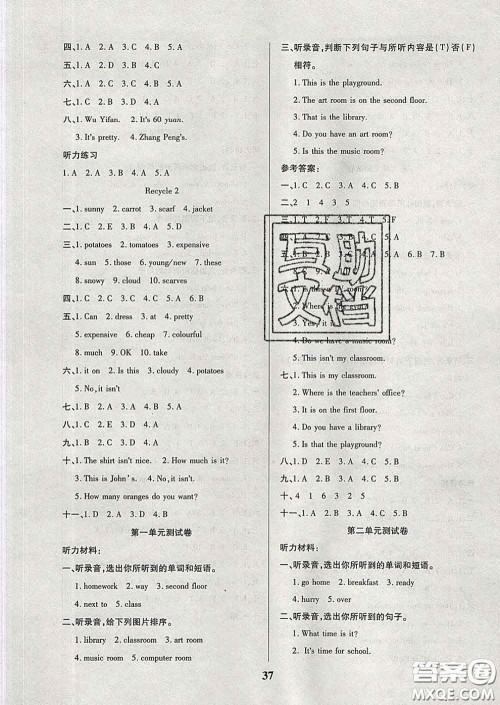 四、1. A 2. A 3. C 4. B 5. A
五、1. A 2. D 3. A 4. C 5. C
六、1. B 2. A 3. B 4. B 5. C
七、1. C 2. E 3. B 4. A 5. D
八、1. Wu Yifan. 2. It's 60 yuan.
3. It's pretty. 4. Zhang Peng's.
听力练习
1. A 2. A 3. B 4. A 5. B
Recycle 2
一、1. sunny 2. carrot 3. scarf 4. jacket
二、1. potatoes 2. tomatoes 3. expensive
4. sun 5. those 6. these 7. shoes
8. snowy 9. cloud 10. scarf
四、1. C 2. B 3. A 4. C 5. A
五、1. cold 2. This 3. on 4. pretty
5. expensive 6. cheap 7. colourful
8. much 9. OK 10. take
六、1. it on 2. Is this 3. cloudy 4. potatoes
5. No, it isn't
七、1. B 2. A 3. A 4. C 5. B
八、1. B 2. D 3. A 4. E 5. C
九、1. B 2. A 3. C 4. B 5. A
十一、1. The shirt isn't nice. 2. How much is it?
3. This is John's. 4. It's very nice.
5. How many oranges do you want?
十二、1. D 2. C 3. A 4. B 5. E
第一单元测试卷
听力材料:
一、听录音,选出你所听到的单词和短语。
1. homework 2. way 3. second floor
4. next to 5. class
二、听录音,给下列图片排序。
1. library 2. classroom 3. art room
4. music room 5. computer room
三、听录音,判断下列句子与所听内容是(T)否(F)
相符。
1. This is the playground.
2. The art room is on the second floor.
3. That is the library.
4. Do you have an art room?
5. Is this the music room?
参考答案:
一、1. C 2. B 3. A 4. C 5. C
二、2 1 4 3 5
三、
6. B 7. B
2. Where is
3. Yes, it
4. Do we have a music room?
5. This isn't my classroom.
七、1. This is my classroom.
2. Where is the teachers' office?
3. It is on the first floor.
4. Do you have a library?
5. Is that the playground?
八、1. D 2. E 3. A 4. C 5. B
九、1. B 2. B 3. A 4. A 5. B
十、4 1 3 5 2
十一、1. C 2. B 3. A 4. C 5. B
第二单元测试卷
听力材料:
一、听录音,选出你所听到的单词和短语。
1. go home 2. breakfast 3. ready
4. hurry 5. just a minute
二、听录音,选出你所听到的句子。
1. What time is it?
2. It's time for school.
37
互助文档
答案圈
MXQE.COM